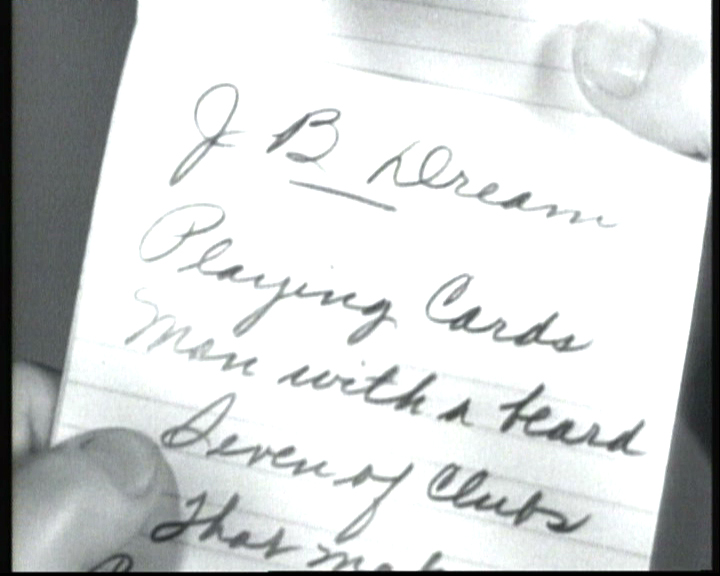 J B Dream
Playing Cards
Man with a beard
Seven of Clubs
That